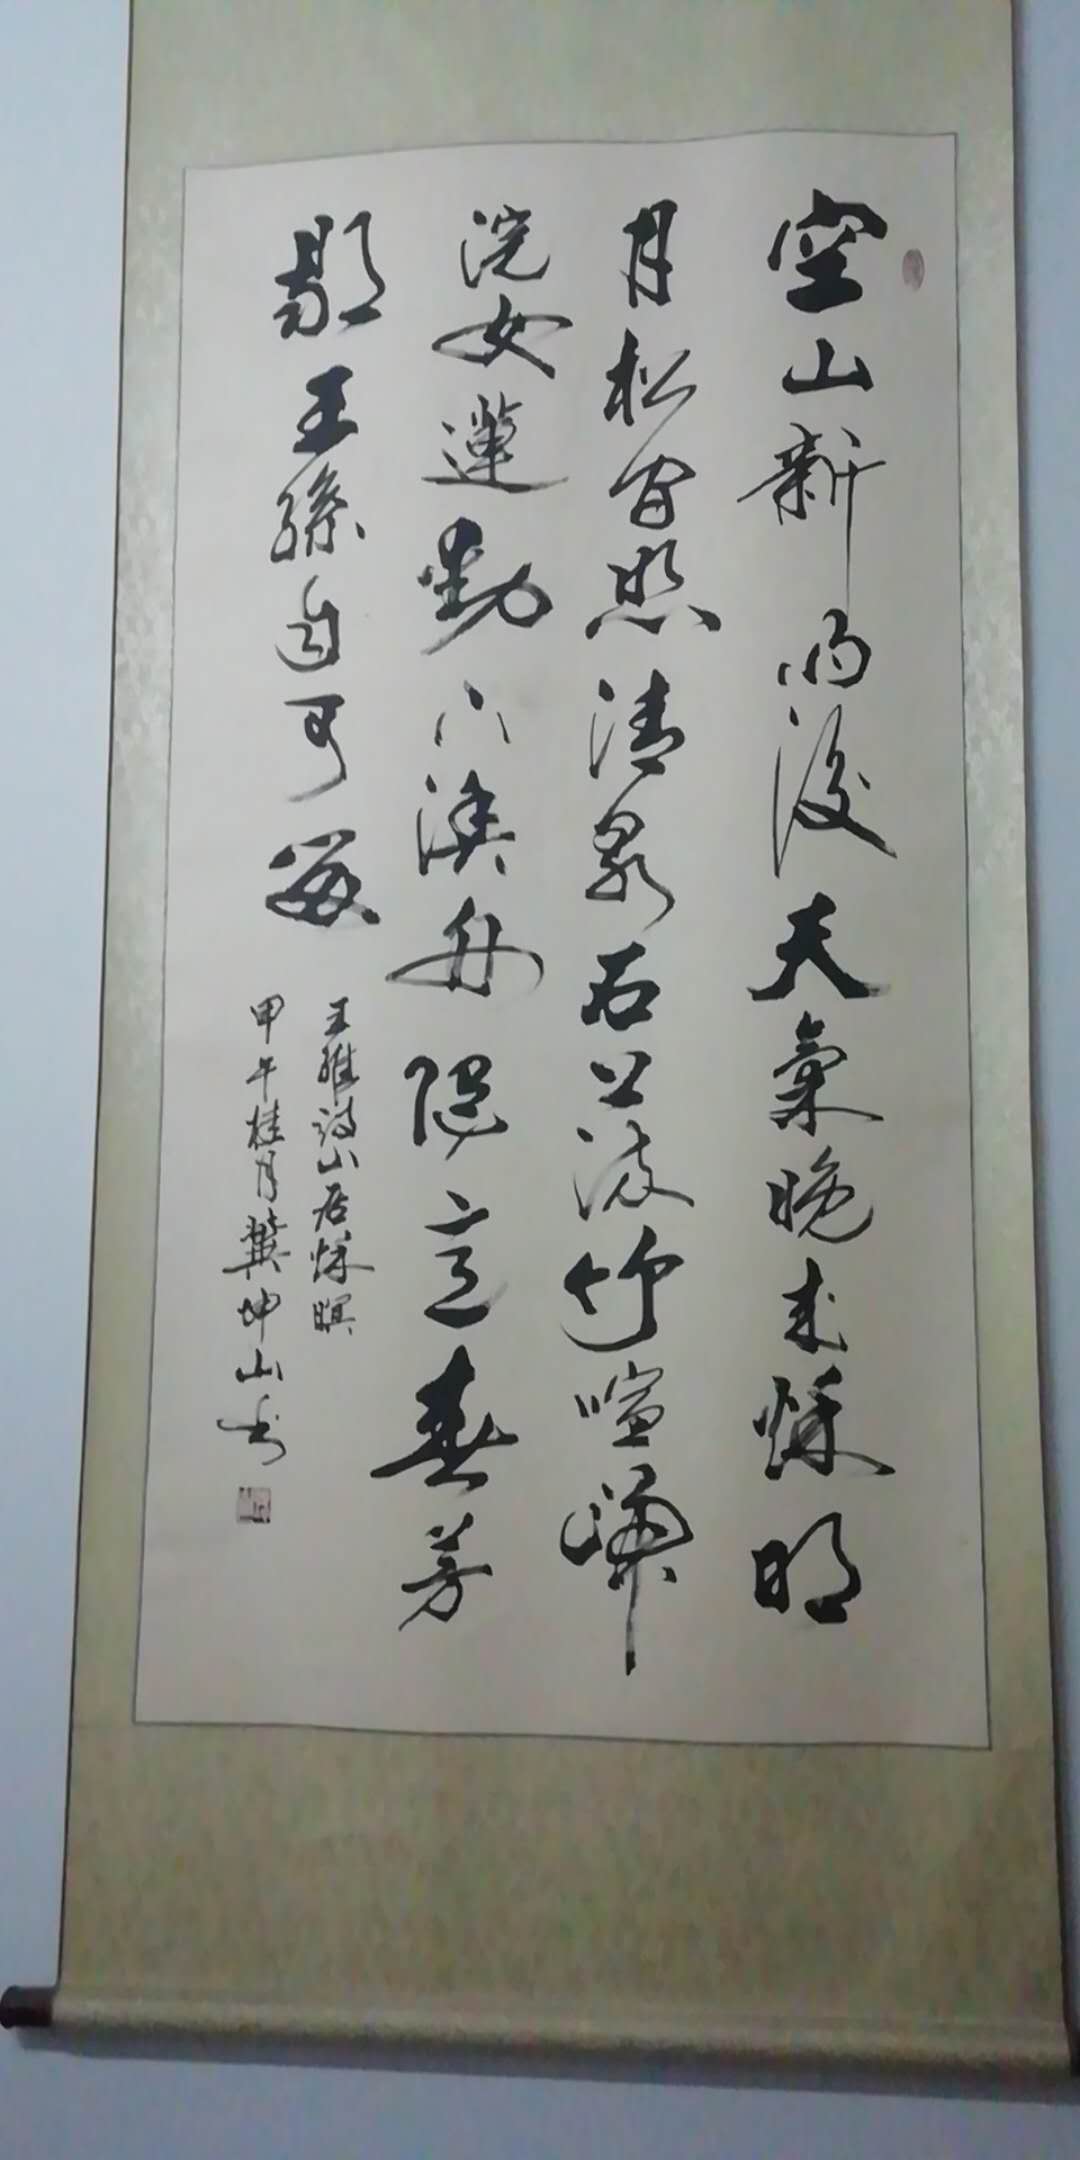 空山新雨後天氣晚來秋明
月松間照清泉石上流竹喧歸
浣女蓮動下漁舟隨意春芳
歇王孫自可留
王維詩山居秋暝
甲午桂月冀坤山书